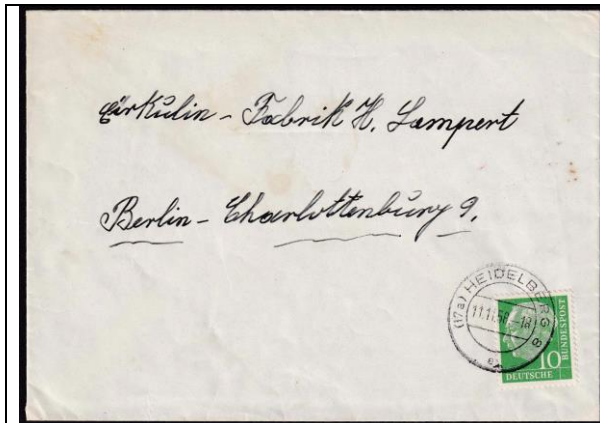 Cirkulin - Fabrik H. Lampert
Berlin - Charlottenburg 9.
(17a) HEIDELBERG 8
11.11.58-18
10
DEUTSCHE BUNDESPOST